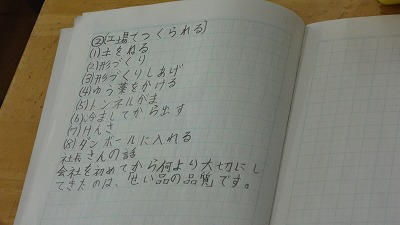 ②[工場でつくられる]
(1)土をねる
(2)形づくり
(3)形づくりしあげ
(4)ゆう薬をかける
(5)トンネルがま
(6)冷ましてから出す
(7)けんさ
(8)ダンボールに入れる
社長さんの話
会社を初めてから何より大切にし
てきたのは、「せい品の品質」です。